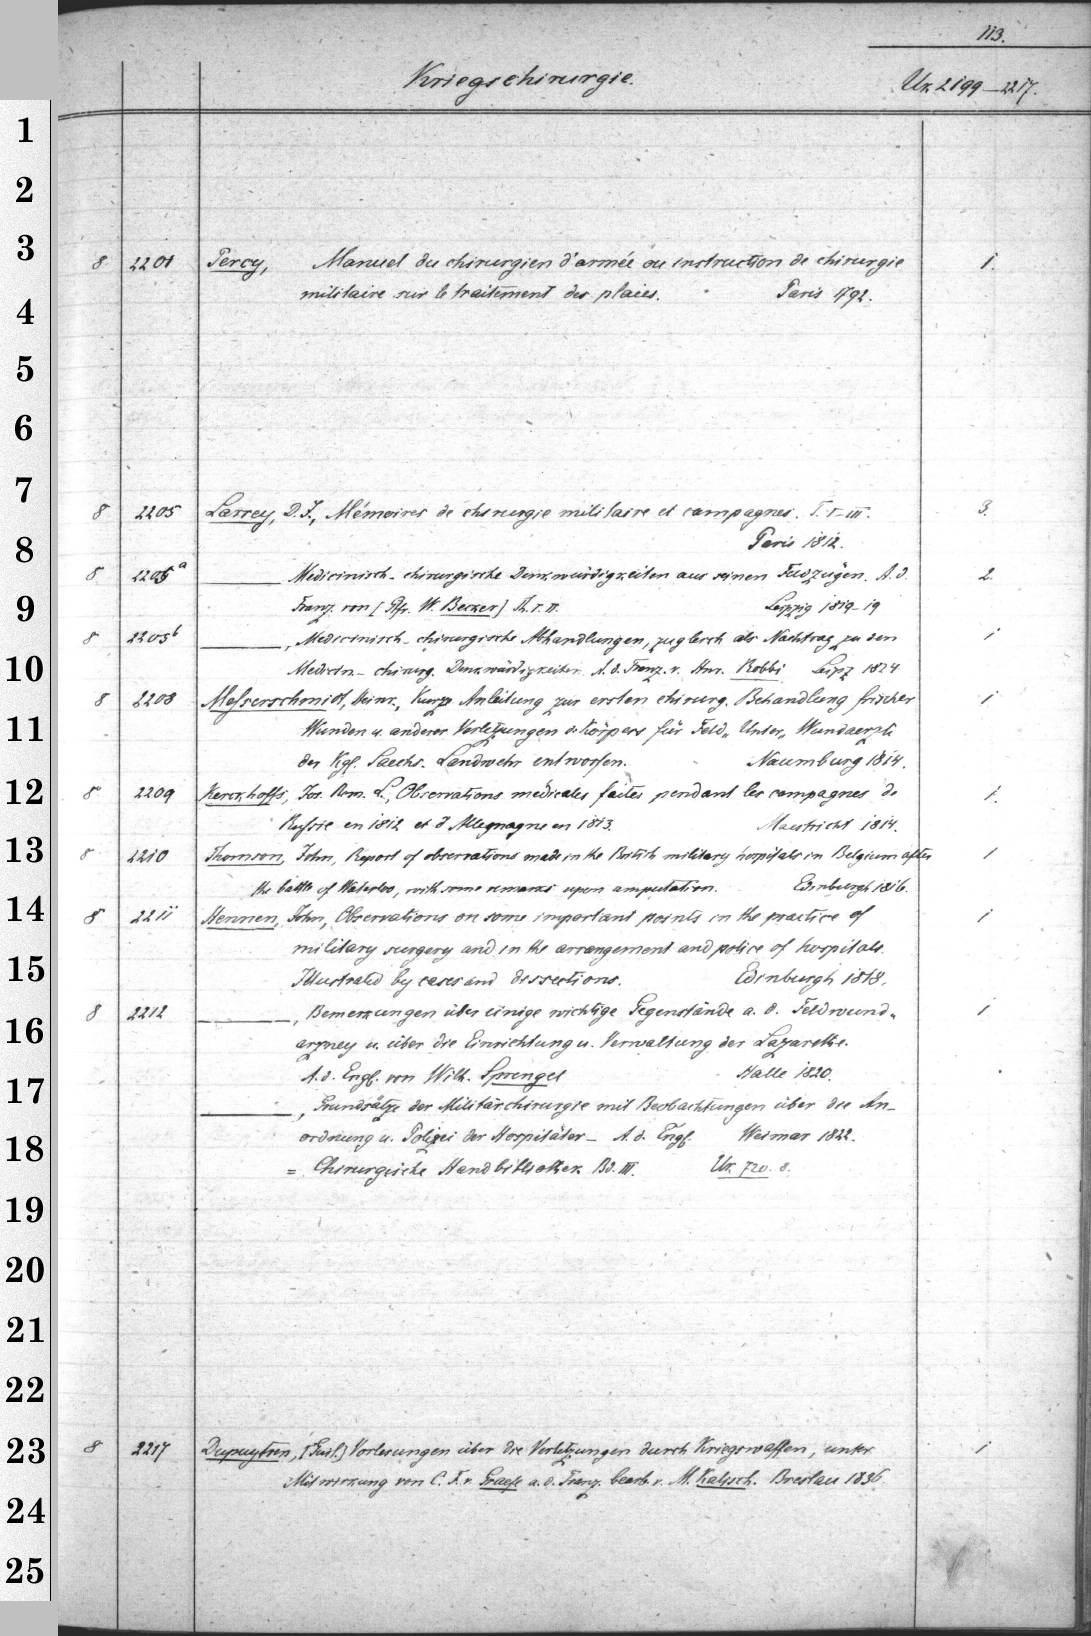 113.
Kriegschirurgie. Ux. 2199-2217.
1
2
3
8 2201 Percy, Manuel du chirurgien d'armée ou instruction de chirurgie 1.
militaire sur le traitement des plaies. Paris 1792.
4
5
6
7
8 2205 Larrey, D. J., Mémoires de chirurgie militaire et campagnes. T. I-III. 3.
8
Paris 1812.
8 2205a ______ Medicinisch-chirurgische Denkwürdigkeiten aus seinen Feldzügen. A. d. 2.
9
Franz. von [Pfr. W. Becker] Th. I. II. Leipzig 1819-19
8 2205b ______, Medicinisch-chirurgische Abhandlungen, zugleich als Nachtrag zu den 1
10
Medicin.-chirurg. Denkwürdigkeiten A. d. Franz. v. Hnr. Robbi Leipz 1824
8 2208 Messerschmidt, Heinr., Kurze Anleitung zur ersten chirurg. Behandlung frischer 1
11
Wunden u. anderer Verletzungen d. Körpers für Feld„ Unter„ Wundaerzte
der Kgl. Saechs. Landwehr entworfen. Naumburg 1814.
12
8 2209 Kerckhoffs, Jos. Rom. L., Observations médicales faites pendant les campagnes de 1.
Russie en 1812 et d'Allemagne en 1813. Maestricht 1814.
13
8 2210 Thomson, John, Report of observations made in the British military hospitals in Belgium after 1
the battle of Waterloo, with some remarks upon amputation. Edinburgh 1816.
14
8 2211 Hennen, John, Observations on some important points in the practice of 1
military surgery and in the arrangement and police of hospitals.
15
Illustrated by cases and dissections. Edinburgh 1818.
8 2212 ______, Bemerkungen über einige wichtige Gegenstände a. d. Feldwund„ 1
16
arzney u. über die Einrichtung u. Verwaltung der Lazarethe.
A. d. Engl. von Wilh. Sprengel Halle 1820.
17
______, Grundsätze der Militärchirurgie mit Beobachtungen über die An-
ordnung u. Polizei der Hospitäler- A. d. Engl. Weimar 1822.
18
= Chirurgische Handbibliothek Bd. III. Ux. 720. 8.
19
20
21
22
23
8 2217 Dupuytren, Vorlesungen über die Verletzungen durch Kriegswaffen, unter 1
Mitwirkung von C. F. v. Graefe a. d. Franz. bearb. v. M. Kalisch. Breslau 1836
24
25